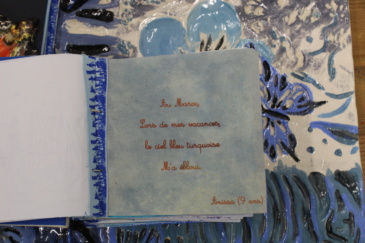 Au Maroc,
Lors de mes vacances,
le ciel bleu turquoise
M'a ébloui.
(9 ans)